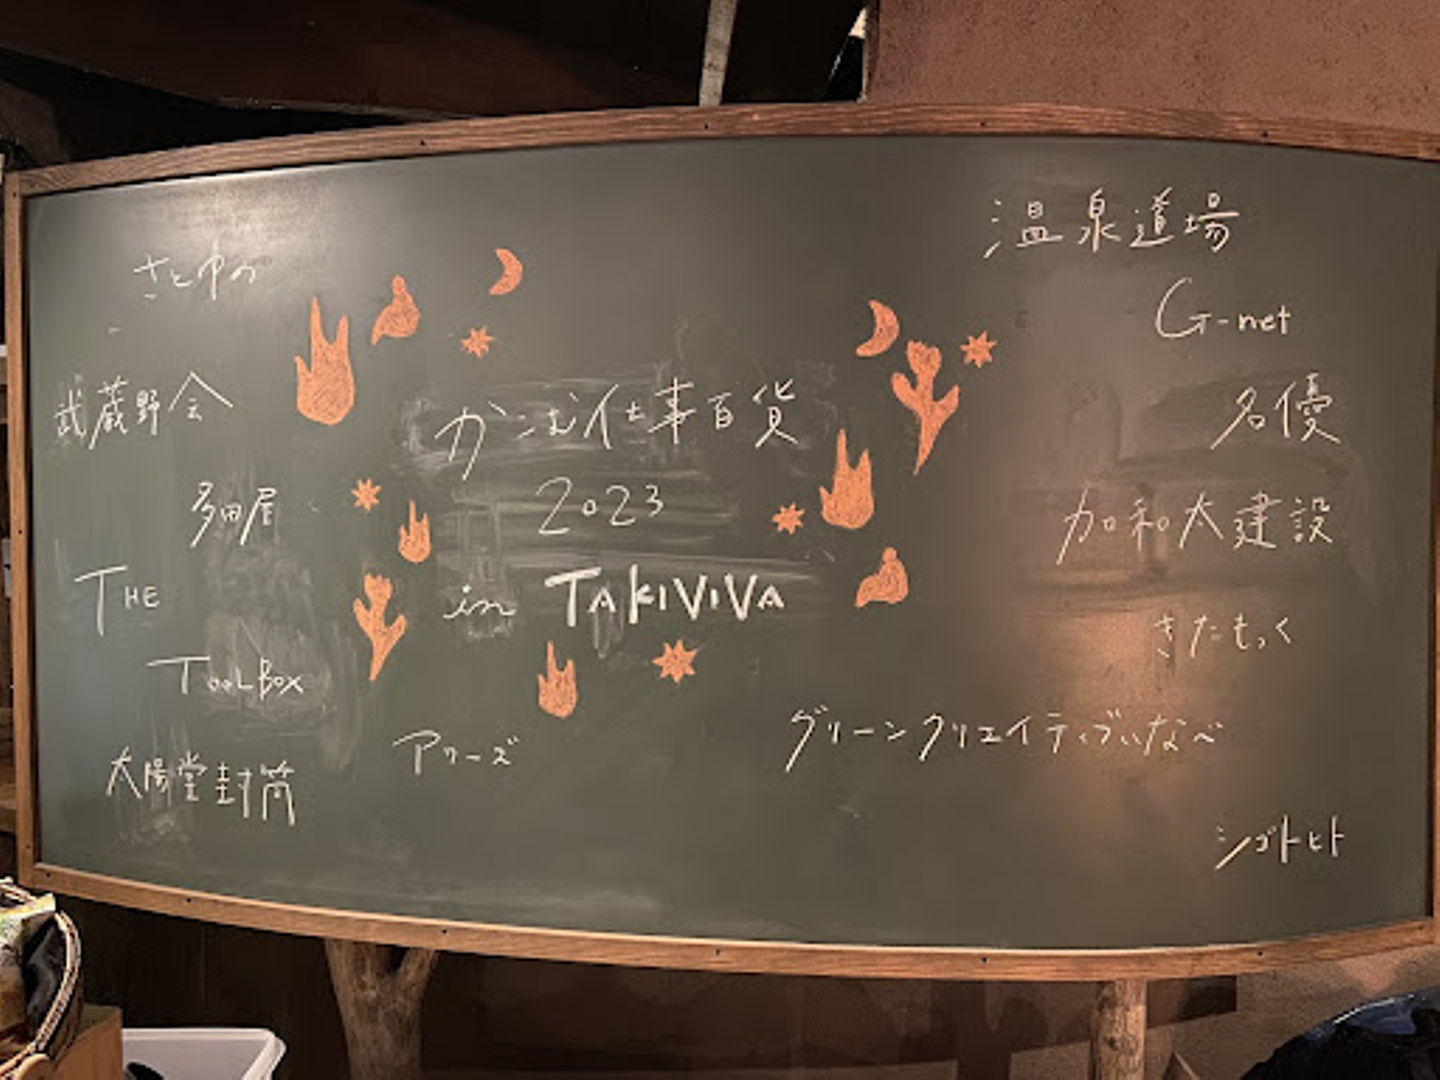 さとゆめ
武蔵野会
多田屋
THE
TOOLBOX
太陽堂封筒
かこむ仕事百貨
2023
in TAKIVIVA
アワーズ
温泉道場
G-net
名優
加和太建設
きたもっく
グリーンクリエイティブいなべ
シゴトヒト